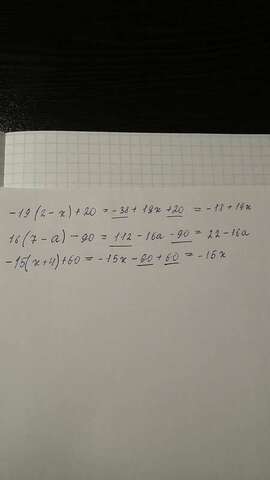 -19(2-x)+20 = -38 + 19x + 20 = -18 + 19x
16(7-a) - 90 = 112 - 16a - 90 = 22 - 16a
-15(x+4)+60 = -15x - 60 + 60 = -15x